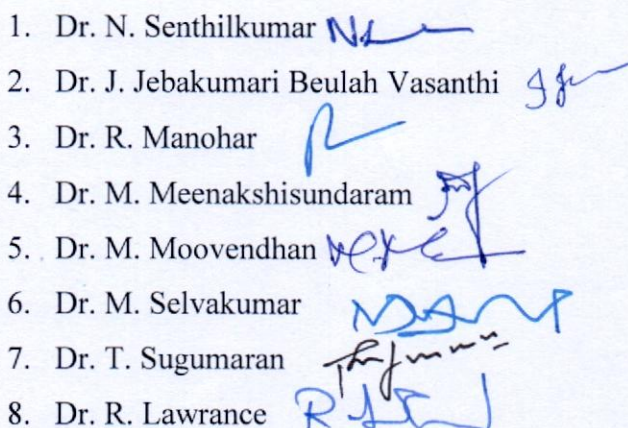 1. Dr. N. Senthilkumar
2. Dr. J. Jebakumari Beulah Vasanthi
3. Dr. R. Manohar
4. Dr. M. Meenakshisundaram
5. Dr. M. Moovendhan
6. Dr. M. Selvakumar
7. Dr. T. Sugumaran
8. Dr. R. Lawrance